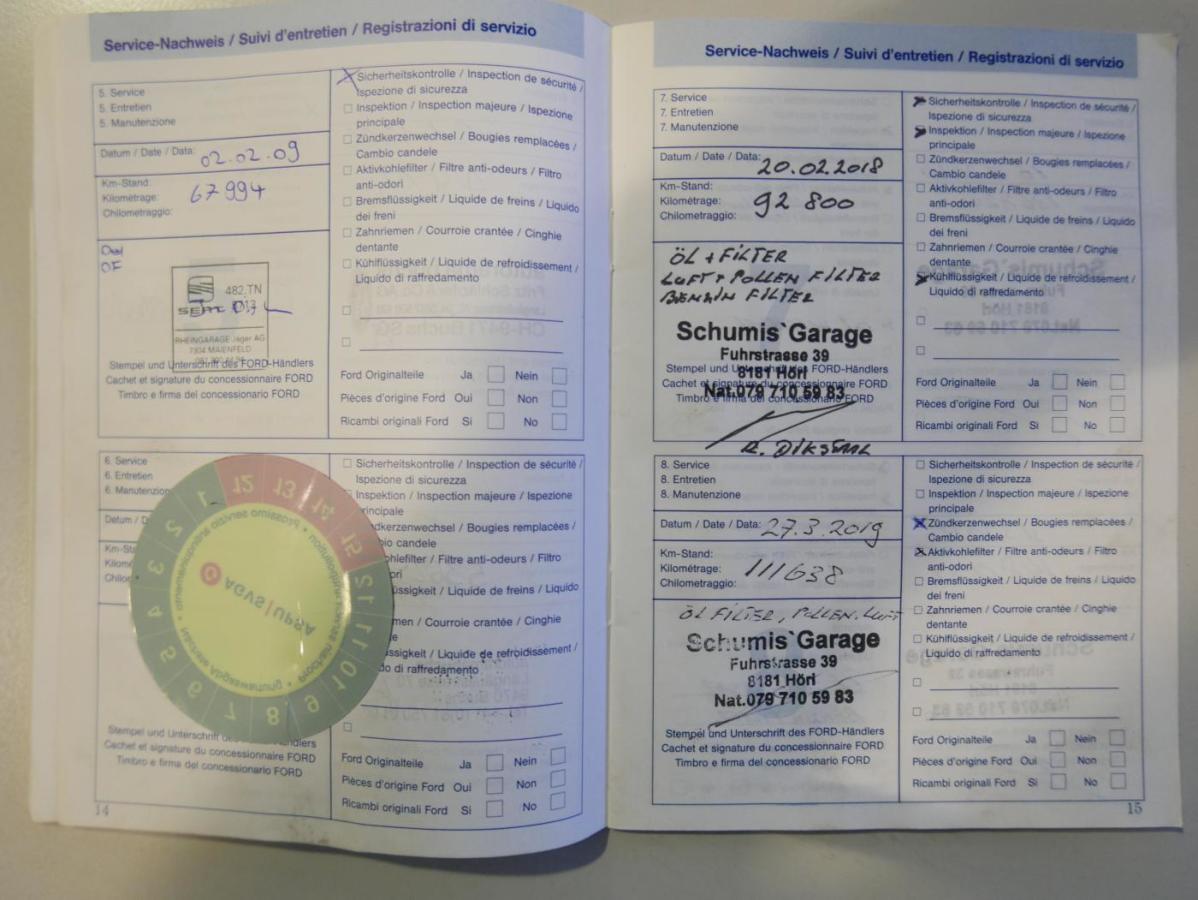 Service-Nachweis / Suivi d'entretien / Registrazioni di servizio
5. Service
5. Entretien
5. Manutenzione
Datum / Date / Data: 02.02.09
Km-Stand:
Kilométrage: 67994
Chilometraggio:
OF
482.TN
SEAT
RHEINGARAGE Jäger AG
7304 MAIENFELD
Stempel und Unterschrift des FORD-Händlers
Cachet et signature du concessionnaire FORD
Timbro e firma del concessionario FORD
Sicherheitskontrolle / Inspection de sécurité /
Ispezione di sicurezza
Inspektion / Inspection majeure / Ispezione
principale
Zündkerzenwechsel / Bougies remplacées /
Cambio candele
Aktivkohlefilter / Filtre anti-odeurs / Filtro
anti-odori
Bremsflüssigkeit / Liquide de freins / Liquido
dei freni
Zahnriemen / Courroie crantée / Cinghie
dentante
Kühlflüssigkeit / Liquide de refroidissement /
Liquido di raffredamento
Ford Originalteile Ja Nein
Pièces d'origine Ford Oui Non
Ricambi originali Ford Si No
6. Service
6. Entretien
6. Manutenzion
Datum / D
Km-Sta
Kilom
Chilo
12 13 14 15
12 11 10 9 8 7 6 5 4 3 2 1
AGVS | UPSA
Stempel und Unterschrift ändlers
Cachet et signature du concessionnaire FORD
Timbro e firma del concessionario FORD
Sicherheitskontrolle / Inspection de sécurité /
Ispezione di sicurezza
Inspektion / Inspection majeure / Ispezione
principale
dkerzenwechsel / Bougies remplacées /
bio candele
ohlefilter / Filtre anti-odeurs / Filtro
ori
üssigkeit / Liquide de freins / Liquido
men / Courroie crantée / Cinghie
e
ssigkeit / Liquide de refroidissement /
do di raffredamento
Ford Originalteile Ja Nein
Pièces d'origine Ford Oui Non
Ricambi originali Ford Si No
14
Service-Nachweis / Suivi d'entretien / Registrazioni di servizio
7. Service
7. Entretien
7. Manutenzione
Datum / Date / Data: 20.02.2018
Km-Stand:
Kilométrage: 92 800
Chilometraggio:
ÖL + FILTER
LUFT + POLLEN FILTER
BENZIN FILTER
Schumis`Garage
Fuhrstrasse 39
8181 Höri
Nat.079 710 59 83
Stempel und Unterschrift des FORD-Händlers
Cachet et signature du concessionnaire FORD
Timbro e firma del concessionario FORD
Sicherheitskontrolle / Inspection de sécurité /
Ispezione di sicurezza
Inspektion / Inspection majeure / Ispezione
principale
Zündkerzenwechsel / Bougies remplacées /
Cambio candele
Aktivkohlefilter / Filtre anti-odeurs / Filtro
anti-odori
Bremsflüssigkeit / Liquide de freins / Liquido
dei freni
Zahnriemen / Courroie crantée / Cinghie
dentante
Kühlflüssigkeit / Liquide de refroidissement /
Liquido di raffredamento
Ford Originalteile Ja Nein
Pièces d'origine Ford Oui Non
Ricambi originali Ford Si No
8. Service
8. Entretien
8. Manutenzione
Datum / Date / Data: 27.3.2019
Km-Stand:
Kilométrage: 111638
Chilometraggio:
ÖL FILTER, POLLEN. LUFT
Schumis`Garage
Fuhrstrasse 39
8181 Höri
Nat.079 710 59 83
Stempel und Unterschrift des FORD-Händlers
Cachet et signature du concessionnaire FORD
Timbro e firma del concessionario FORD
Sicherheitskontrolle / Inspection de sécurité /
Ispezione di sicurezza
Inspektion / Inspection majeure / Ispezione
principale
Zündkerzenwechsel / Bougies remplacées /
Cambio candele
Aktivkohlefilter / Filtre anti-odeurs / Filtro
anti-odori
Bremsflüssigkeit / Liquide de freins / Liquido
dei freni
Zahnriemen / Courroie crantée / Cinghie
dentante
Kühlflüssigkeit / Liquide de refroidissement /
Liquido di raffredamento
Ford Originalteile Ja Nein
Pièces d'origine Ford Oui Non
Ricambi originali Ford Si No
15